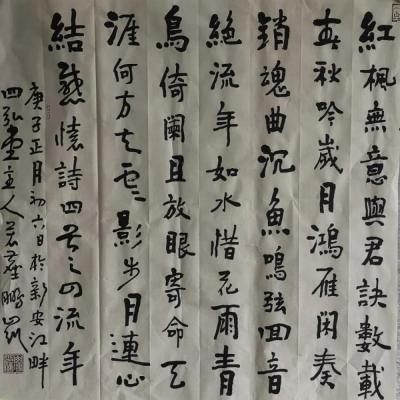 紅楓無意與君訣數載
春秋吟歲月鴻雁閑奏
銷魂曲沉魚鳴弦回音
絕流年如水惜花雨青
鳥倚闌且放眼寄命天
涯何方去雲影步月連心
結感懷詩四首之四流年
庚子正月初六日於新安江畔
四弘堂主人